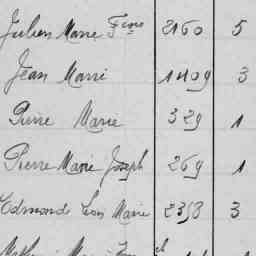 Julien Marie Fçois 2160 5
Jean Marie 1409 3
Pierre Marie 329 1
Pierre Marie Joseph 269 1
Edmond Louis Marie 2358 3